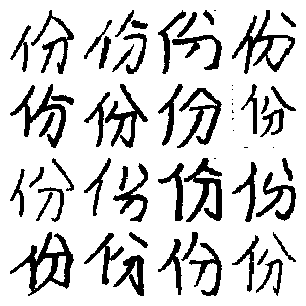 份份份份
份份份份
份份份份
份份份份